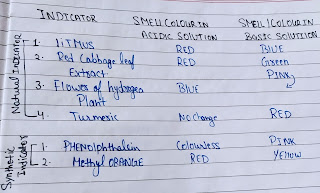 INDICATOR SMELL COLOUR IN SMELL/COLOUR IN
ACIDIC SOLUTION BASIC SOLUTION
Natural Indicator
1. LITMUS RED BLUE
2. Red Cabbage leaf RED Green
Extract PINK
3. Flower of hydrogea BLUE
Plant
4. Turmeric NO Change RED
Synthetic Indicator
1. PHENOLPhthalein Colourless PINK
2. Methyl ORANGE RED YELLOW